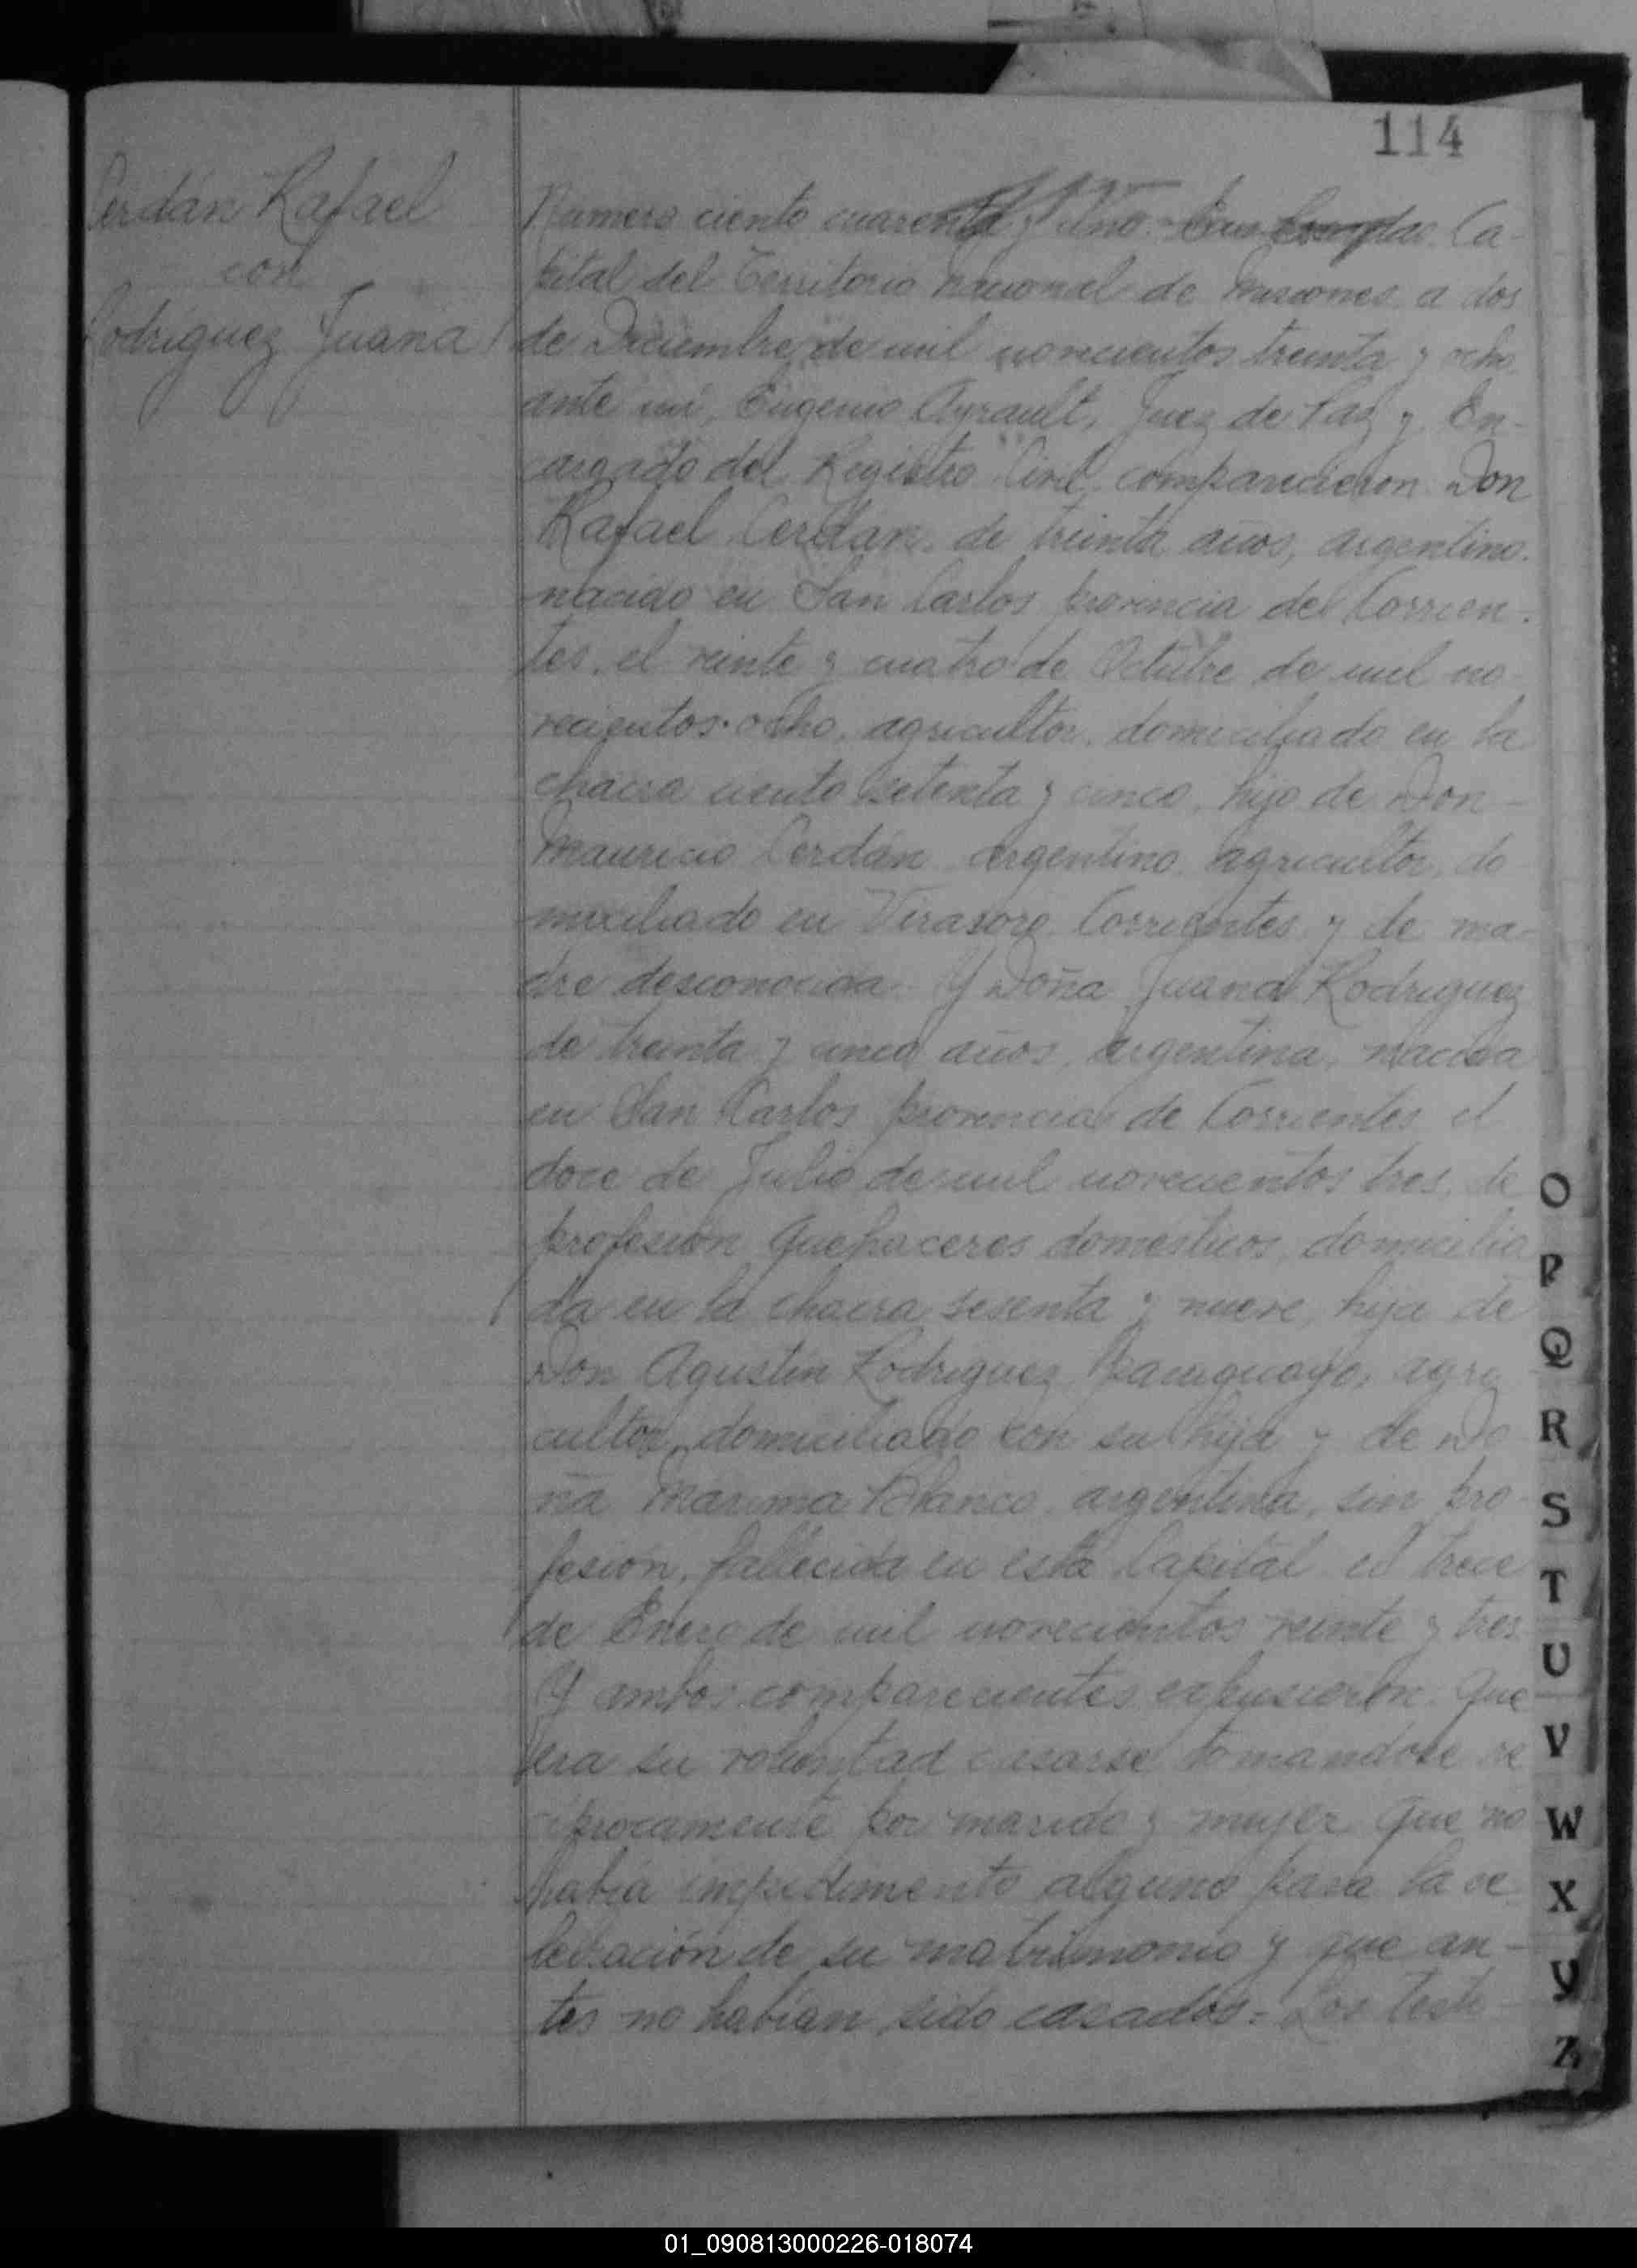 114
Cerdán Rafael
con
Rodriguez Juana
Numero ciento cuarenta y uno. En Posadas Ca-
pital del Territorio Nacional de Misiones a dos
de Diciembre de mil novecientos treinta y ocho
ante mi, Eugenio Ayrault, Juez de Paz y En-
cargado del Registro Civil comparecieron Don
Rafael Cerdan, de treinta años, argentino,
nacido en San Carlos provincia de Corrien-
tes, el veinte y cuatro de Octubre de mil no-
vecientos ocho, agricultor, domiciliado en la
chacra ciento setenta y cinco, hijo de Don
Mauricio Cerdán argentino, agricultor, do
miciliado en Virasoro Corrientes y de ma-
dre desconocida. Y Doña Juana Rodriguez
de treinta y cinco años, argentina, nacida
en San Carlos provincia de Corrientes el
doce de Julio de mil novecientos tres, de
profesión quehaceres domésticos, domicilia
da en la chacra sesenta y nueve, hija de
Don Agustin Rodriguez, paraguayo, agri
cultor, domiciliado con su hija y de Do
ña Maxima Blanco, argentina, sin pro-
fesión, fallecida en esta Capital el trece
de Enero de mil novecientos veinte y tres.
Y ambos comparecientes expusieron: Que
era su voluntad casarse tomandose re
ciprocamente por marido y mujer que no
habia impedimento alguno para la ce
lebración de su matrimonio y que an-
tes no habian sido casados = Los testi-
O
P
Q
R
S
T
U
V
W
X
Y
Z
01_090813000226-018074